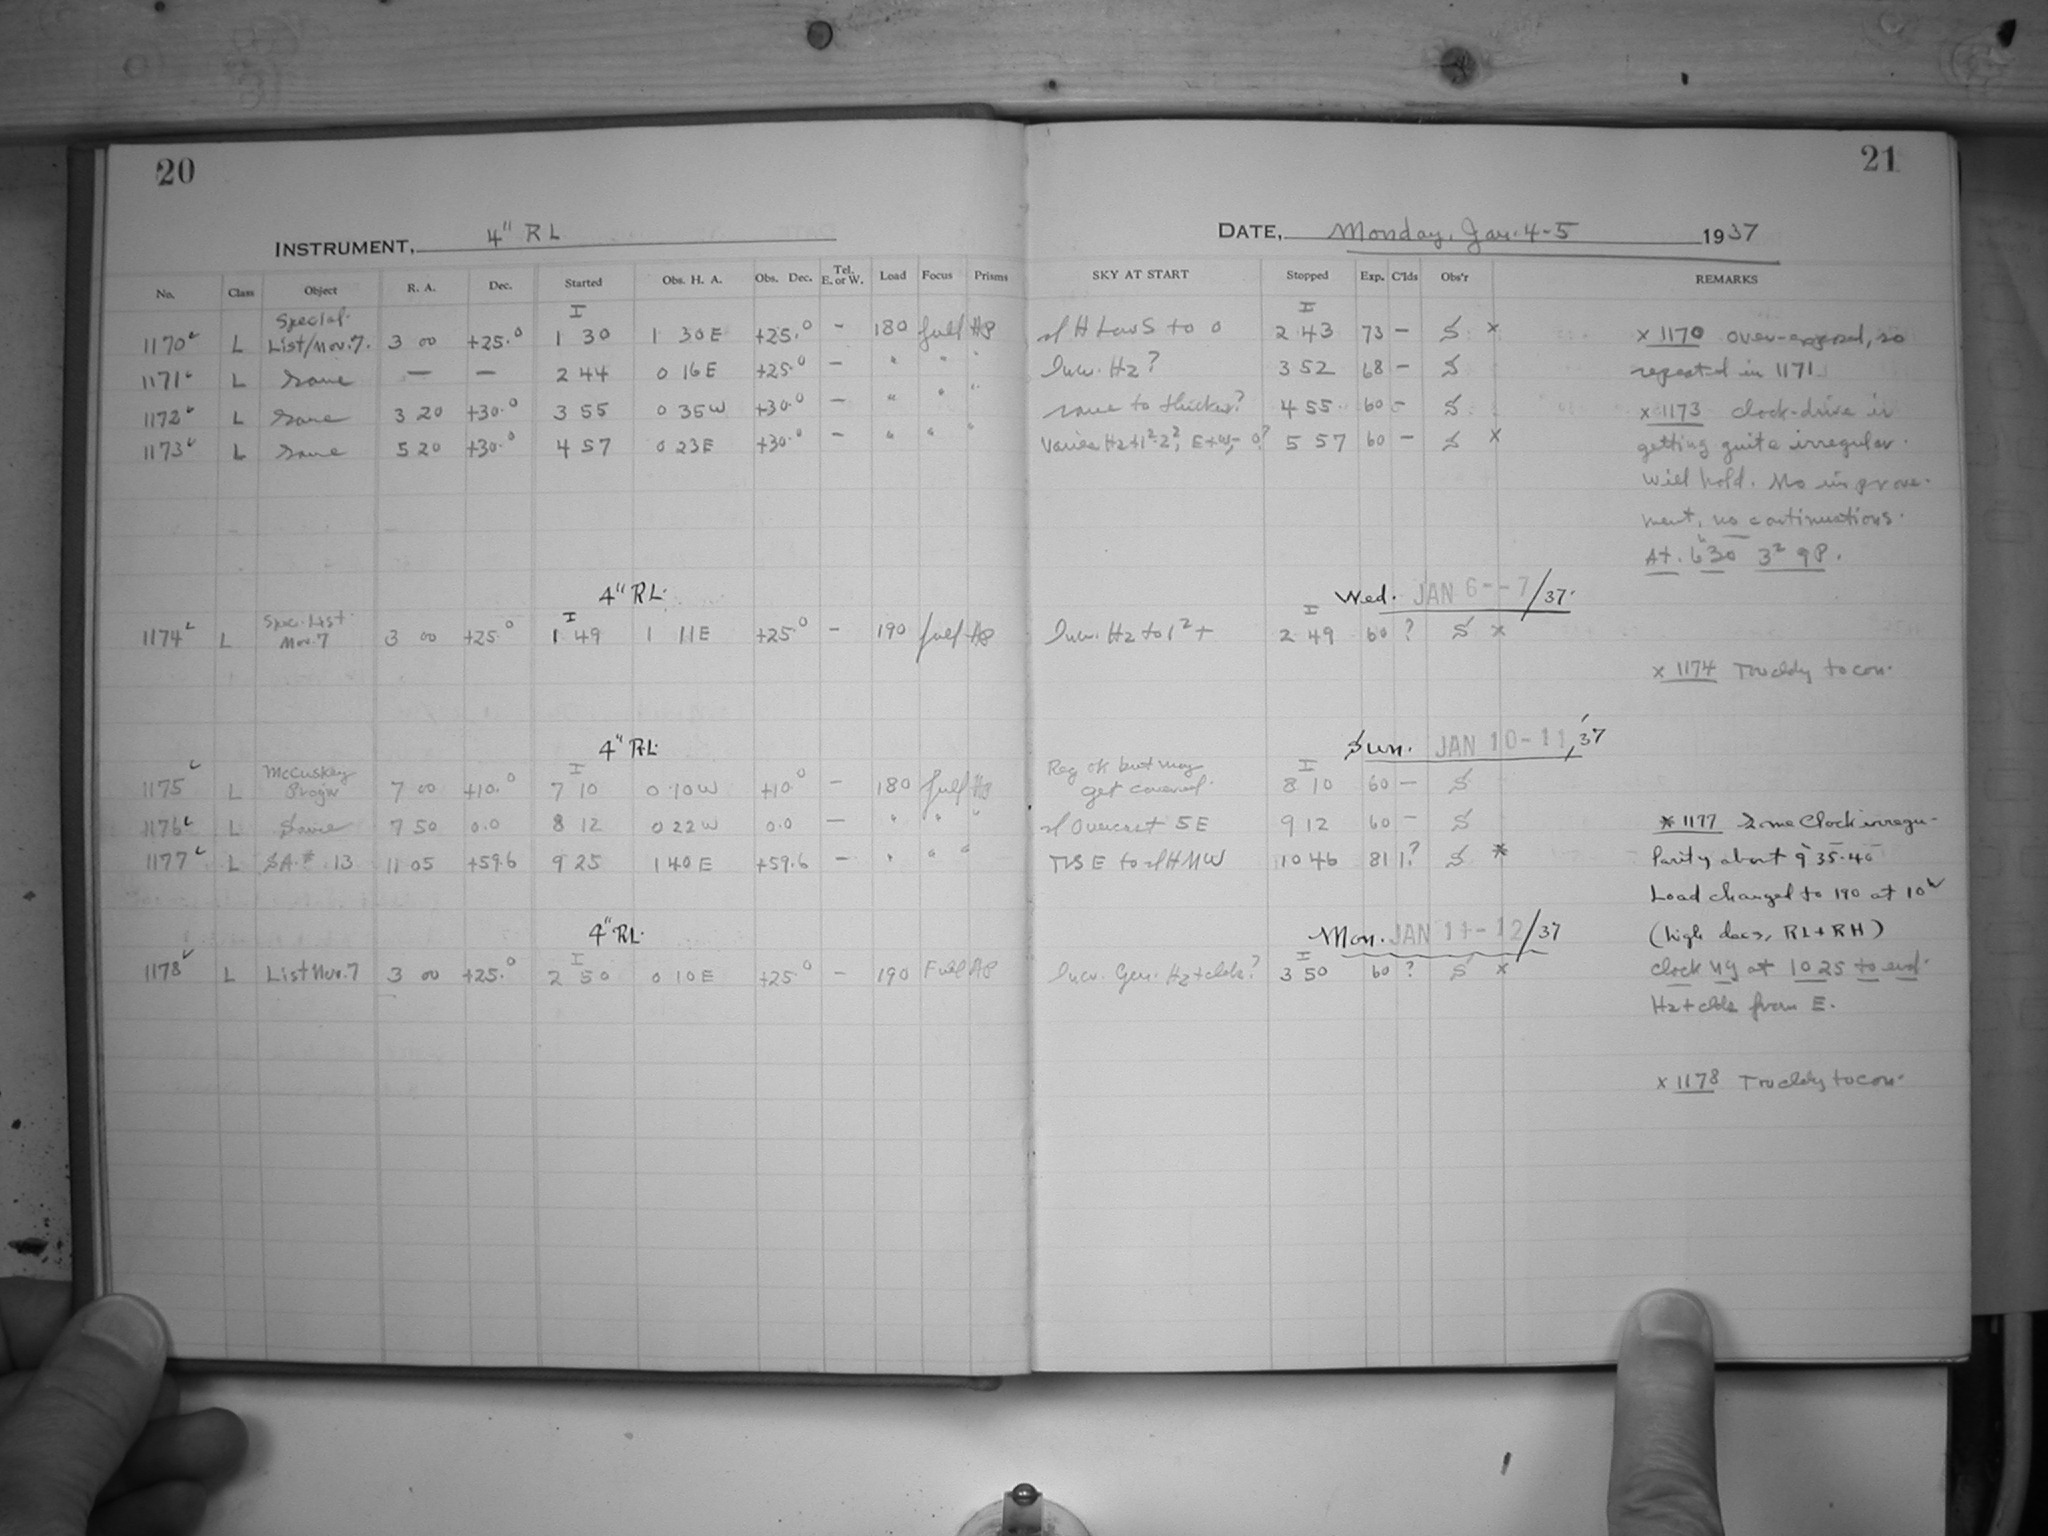 20
21
INSTRUMENT, 4" RL
DATE, Monday, Jan. 4-5 1937
No. Class Object R. A. Dec. Started Obs. H. A. Obs. Dec. Tel. E. or W. Load Focus Prisms
SKY AT START Stopped Exp. C'lds Obs'r REMARKS
I I
Special
1170 L List/Nov. 7. 3 00 +25.0 1 30 1 30E +25.0 - 180 full 2 43 73 - S x
x 1170 over-exposed, so
1171 L Same — — 2 44 0 16E +25.0 - " " " Incr. Hz? 3 52 68 - S
repeated in 1171
1172 L Same 3 20 +30.0 3 55 0 35W +30.0 - " " " same to thicker? 4 55 60 - S
x 1173 clock-drive is
1173 L Same 5 20 +30.0 4 57 0 23E +30.0 - " " " Varies 5 57 60 - S x
getting quite irregular.
Will hold. No improve-
ment, no continuations.
At. 6 30 3² 9P.
4" RL.
Wed. JAN 6--7/37.
I I
Spec. List
1174 L Nov. 7 3 00 +25.0 1 49 1 11E +25.0 - 190 full Incr. Hz to 1²+ 2 49 60 ? S x
x 1174 to con.
4" RL.
Sun. JAN 10-11,'37
I I
McCuskey
Reg ok but may
1175 L Progr 7 00 +10.0 7 10 0 10W +10.0 - 180 full get covered. 8 10 60 - S
1176 L Same 7 50 0.0 8 12 0 22W 0.0 - " " " Overcast SE 9 12 60 - S
* 1177 Some Clock irregu-
1177 L SA.# 13 11 05 +59.6 9 25 1 40E +59.6 - " " " 10 46 81 1? S *
larity about 9 35-40
Load changed to 190 at 10
4" RL.
Mon. JAN 11-12/37
(high decs, RL+RH)
I I
1178 L List Nov. 7 3 00 +25.0 2 50 0 10E +25.0 - 190 Full Incr. Gen. Hz+clds? 3 50 60 ? S x
clock at 10 25 to end.
Hz+clds from E.
x 1178 to con.